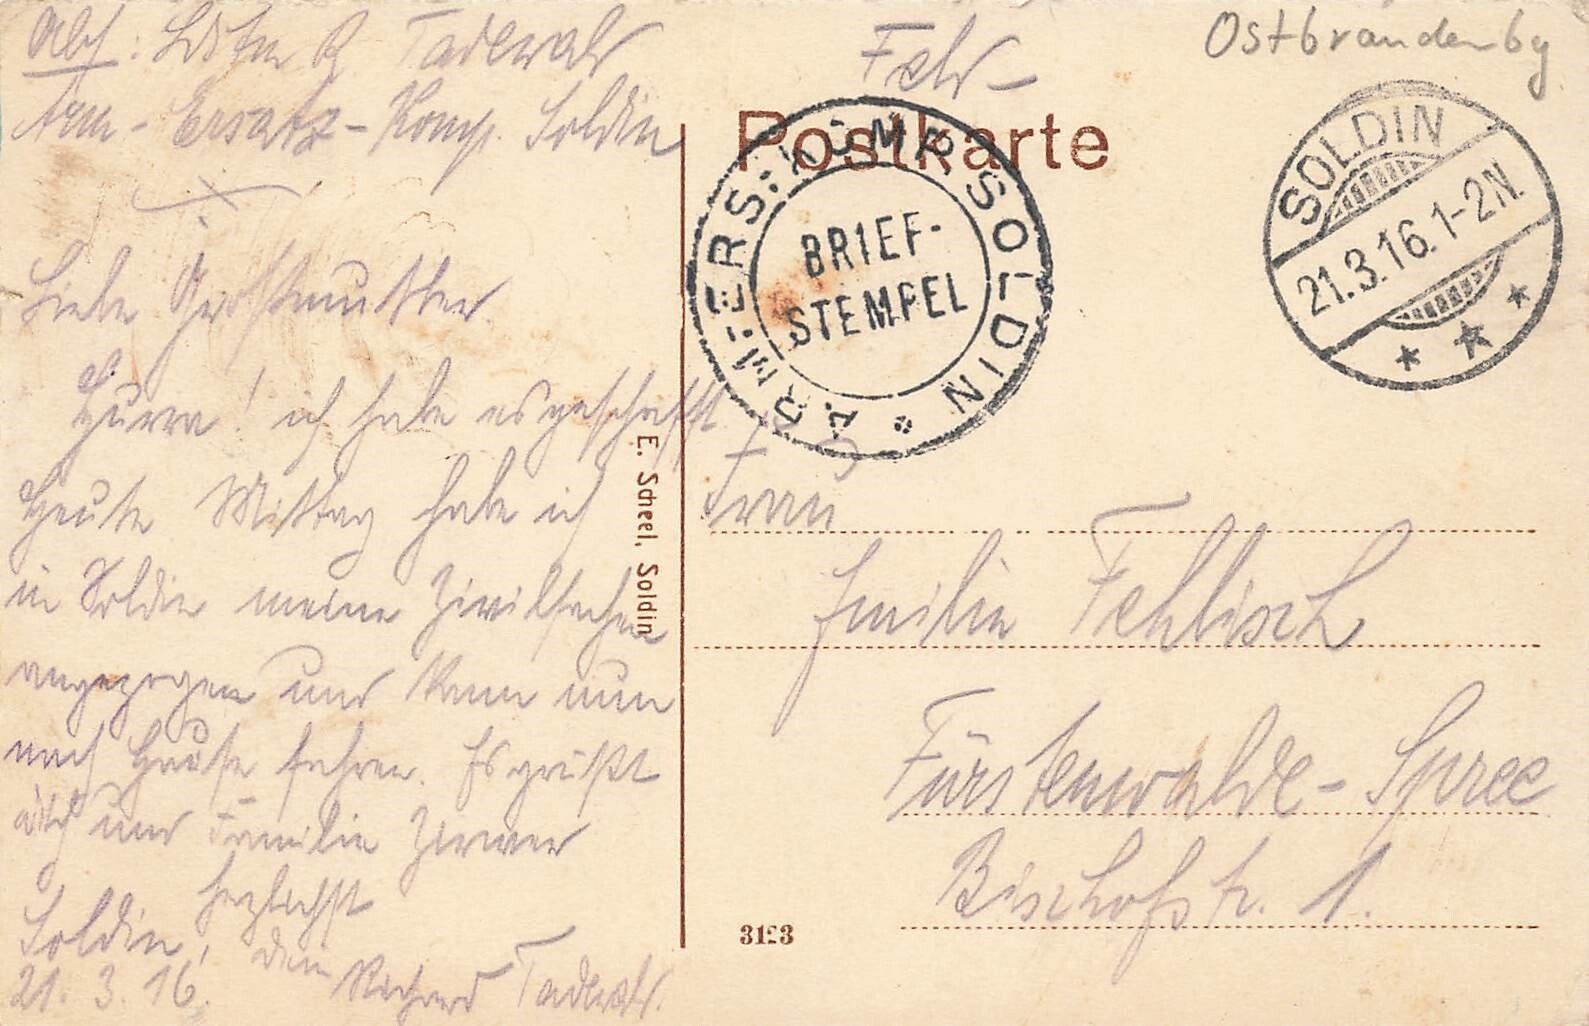 Abs: Ldstm R. Tadewald
Arm-Ersatz-Komp. Soldin
Liebe Großmutter.
Hurra! ich habe es geschafft
Heute Mittag habe ich
in Soldin meine Zivilsachen
angezogen und kann nun
nach Hause fahren. Es grüßt
dich und Familie
herzlichst
Soldin, dein Richard
21. 3. 16.
E. Scheel, Soldin
Feld-
Postkarte
Ostbrandenbg
ARM:-ERS:-KOMP. SOLDIN
BRIEF-
STEMPEL
SOLDIN
21.3.16.1-2N.
Frau
Emilie Fehlisch
Fürstenwalde-Spree
Bischofstr. 1.
3123